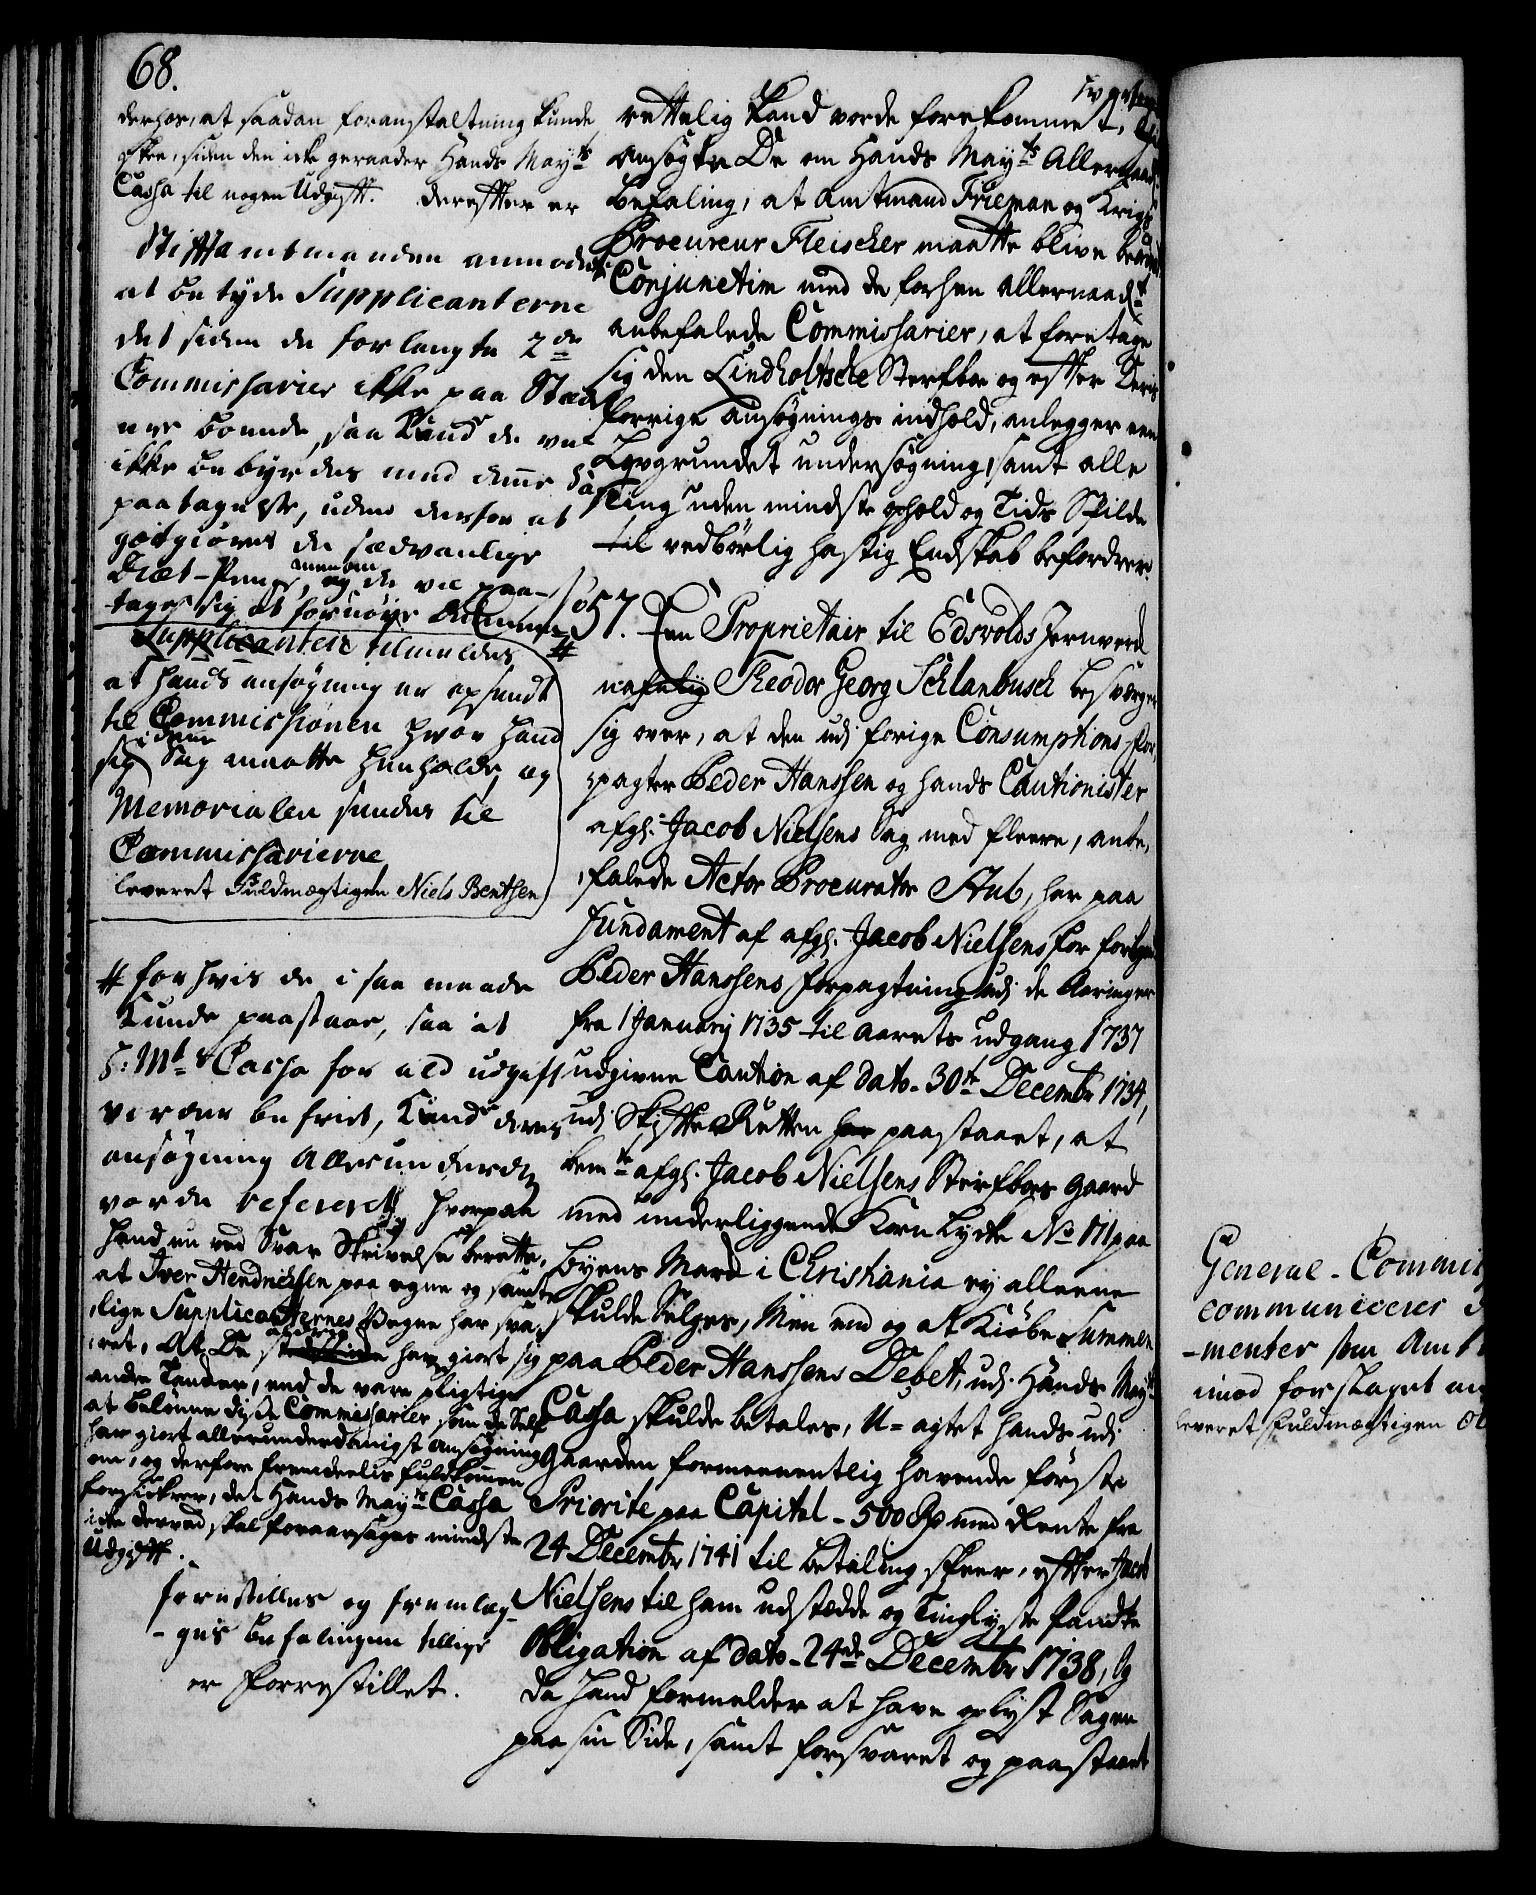 68.
derhos, at saadan foranstaltning kunde
skee, siden den icke geraader Hands Mayts
Cassa til nogen Udgift. Derefter er
Stiftamtmanden anmodet
at betyde Supplicanterne
det siden de forlangte 2de
Commissarier ikke paa Stædet
ere boende, saa kand de vel
ikke bebyrdes med denne
paatagelse, uden derfor at
godtgiøres de sædvanlige
Diæt-Penge, og de vil paa-
tage sig at fornøye dem
Supplicanten tilmeldes
at hands ansøgning er exsendt
til Commissionen hvor hand
sig i denne Sag maatte henholde, og
Memorialen sendes til
Commissarierne
leveret Fuldmægtigen Niels Bentsen
# for hvis de i saa maade
kunde paastaae, saa at
H: Mts Cassa for ald udgift
vorder befriet, kand deres
ansøgning allerunderdgst
vorde refereret, hvorpaa
hand nu ved Svar Skrivelse beretter,
at Iver Hendrichsen paa egne og samt-
lige Supplicanternes Vegne har sva-
ret, At De har giort sig
andre Tanker, end de vare pligtige
at belønne disse Commissarier som de Self
har giort allerunderdanigst ansøgning
om, og derfore fremdeelis fuldkommen
forsickrer, det Hands Mayts Cassa
icke derved skal foraarsages mindste
Udgift.
forestilles og fremlæg-
-ges befalingen tillige
er forrestillet.
rettelig kand vorde forekommet,
ansøgte De om Hands Mayts Allernaad:
befaling, at Amtmand Frieman og Krigs
Procureur Fleischer maatte blive beordret
Conjunctim med de forhen allernaadst
anbefalede Commissarier, at foretage
sig den Lindholtske Sterfboe og efter Deris
forrige ansøgnings indhold, anlegger een
Lovgrundet undersøgning, samt alle
Ting uden mindste ophold og Tids Spilde
til vedbørlig hastig Endskab befordrer.
57. Een Proprietair til Edsvolds Jernverck
nafnlig Theodor Georg Schlanbusch besværger
sig over, at den udj forige Consumptions for-
pagter Peder Hanssen og hands Cautionister
afg: Jacob Nielsens Sag med fleere, anbe-
falede Actor Procurator Stub, har paa
Fundament af afg: Jacob Nielsens for forbem:
Peder Hanssens forpagtning udj de Aaringer
fra 1 January 1735 til Aarets udgang 1737
udgivne Caution af dato 30te Decembr 1734,
udj Skifte Retten har paastaaet, at
bemte afg: Jacob Nielsens Sterfboes gaard
med underliggende Korn Løcke No 111 paa
Byens Marck i Christiania ey alleene
skulde Selges, Men end og at Kiøbe Summen
paa Peder Hanssens Debet, udj Hands Mayts
Cassa skulde betales, U-agtet hands udj
Gaarden formeenentlig havende første
Priorite paa Capital - 500 Rd med Rente fra
24 Decembr 1741 til betaling skeer, efter Jacob
Nielsens til ham udstædde og Tinglyste Pandte
Obligation af dato 24de Decembr 1738, Og
da Hand formelder at have oplyst Sagen
paa sin Side, samt forsvaret og paastaaet
General-Commis
communiceres
-menter som Amt
imod forslaget
leveret Fuldmægtigen